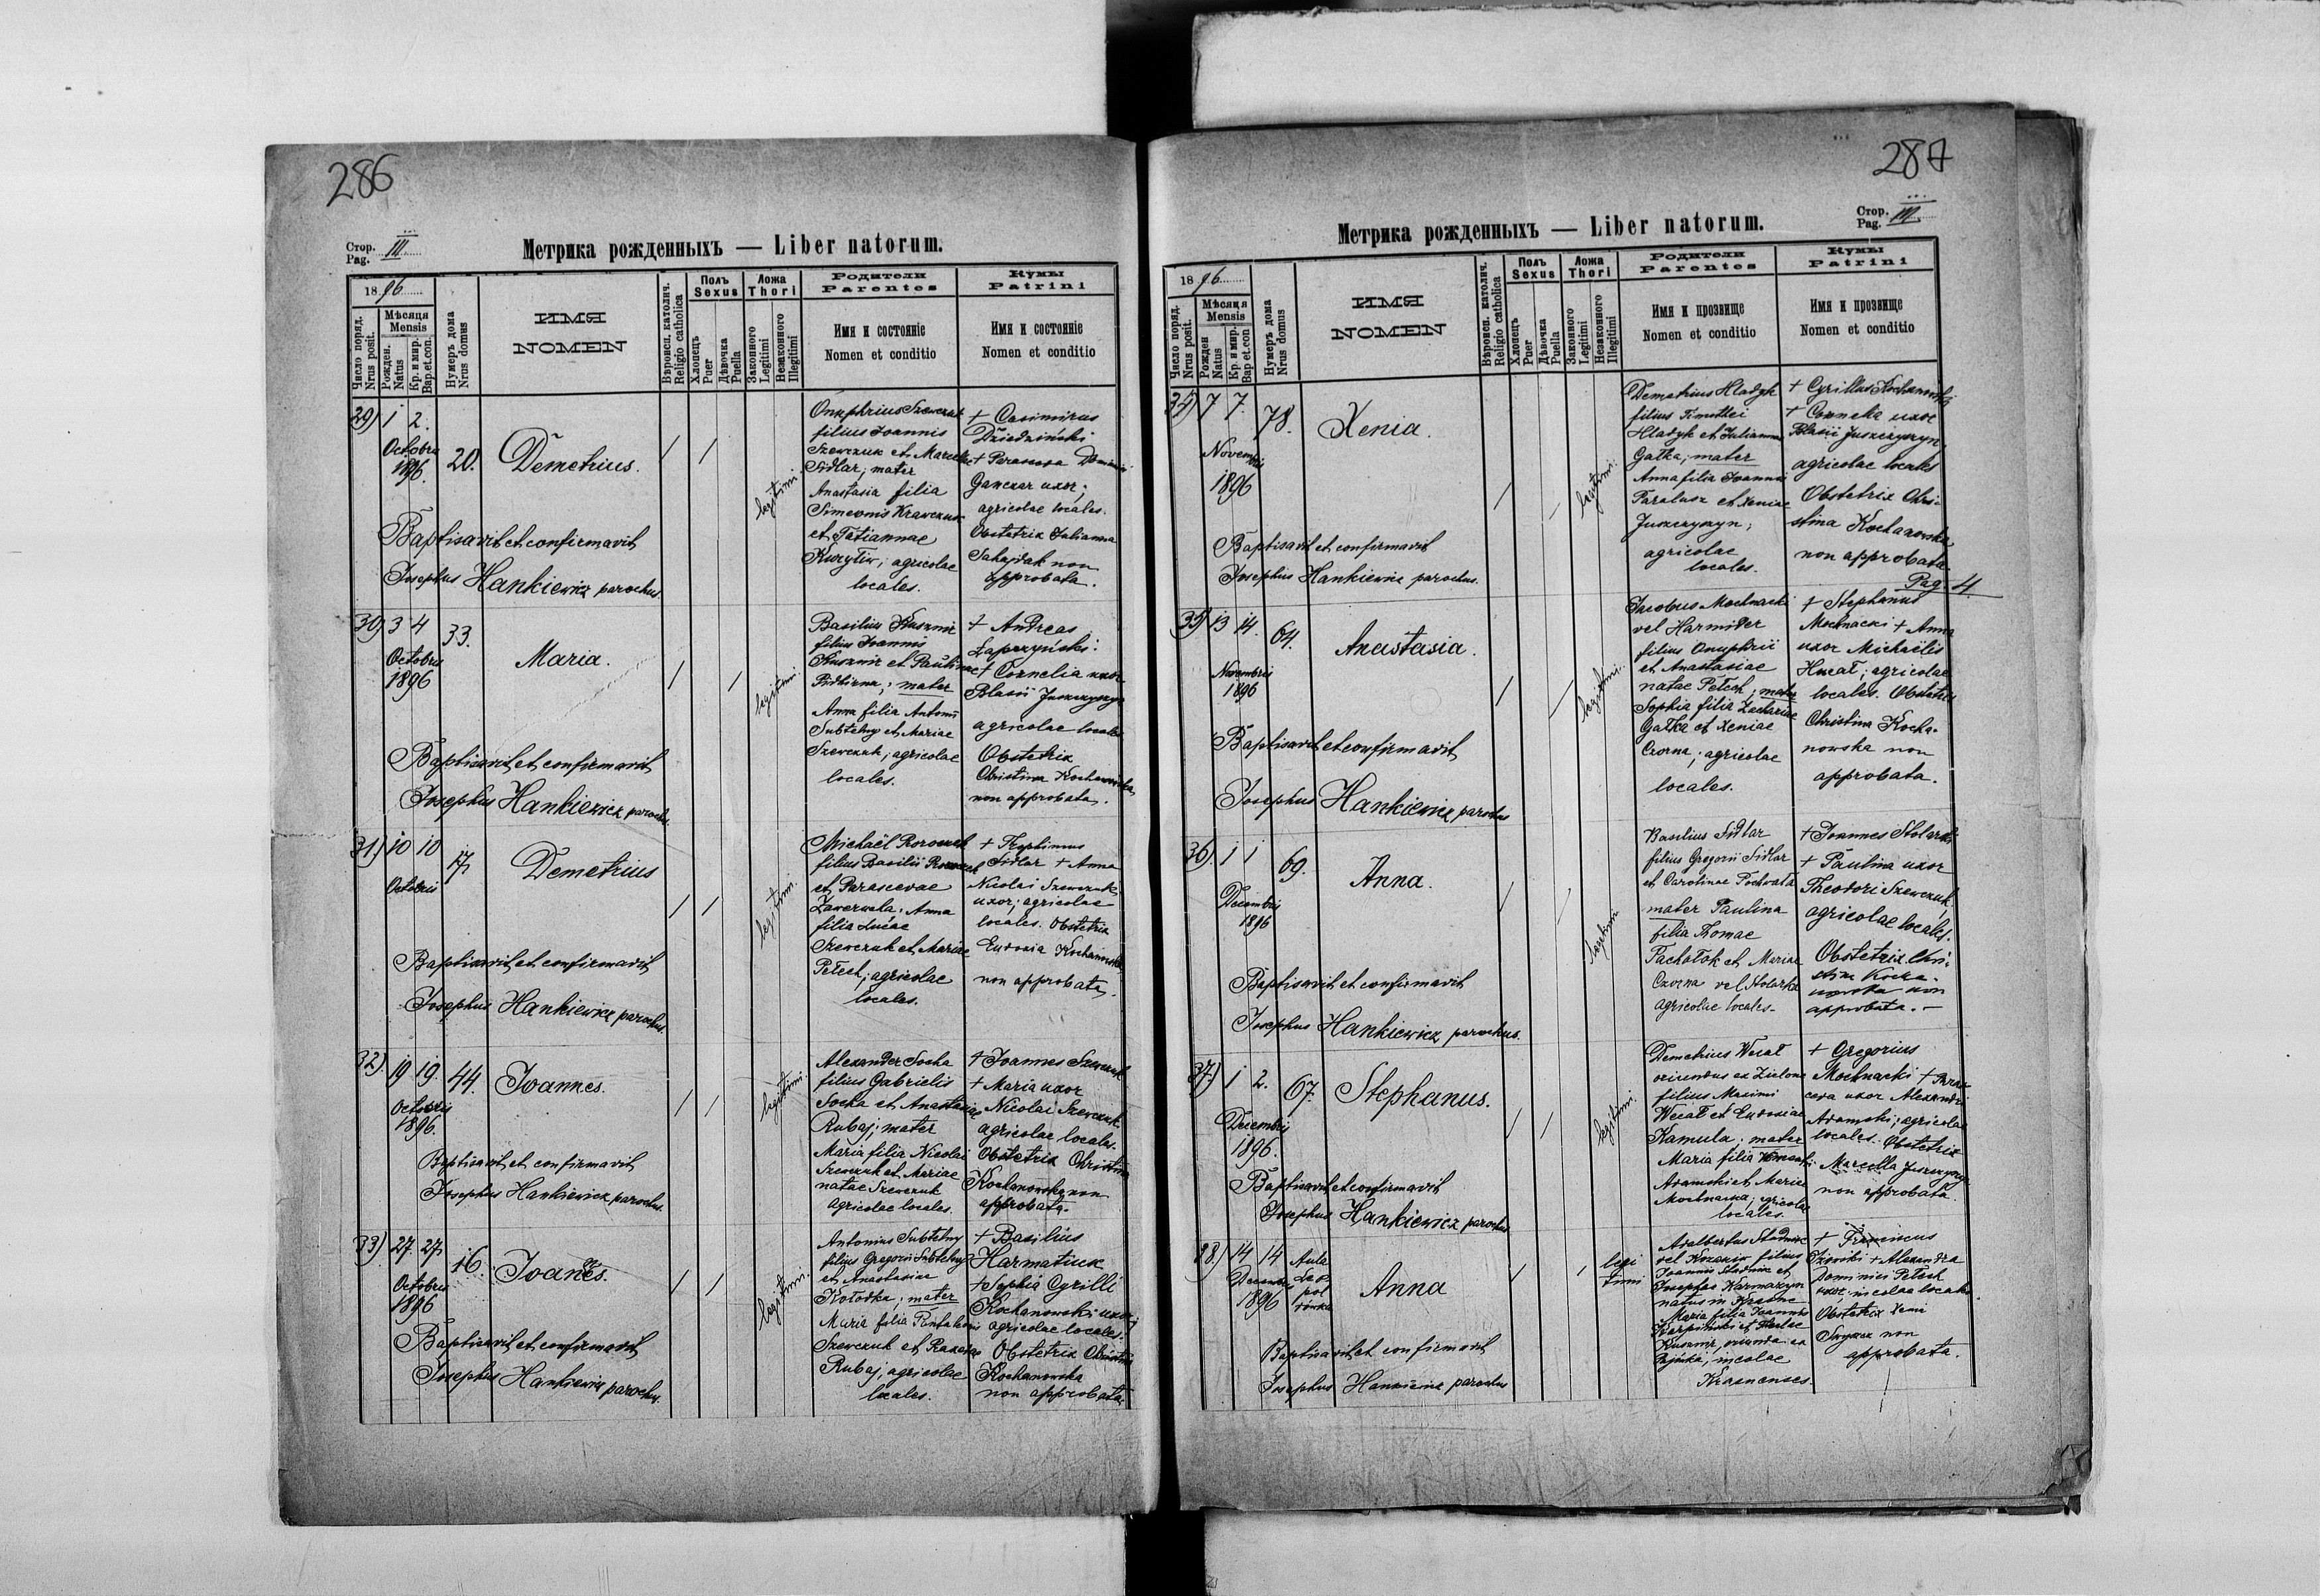 286
Стор. Pag. III
Метрика рожденныхъ — Liber natorum.
1896
Число поряд. Nrus posit.
Мѣсяця Mensis
Рожден. Natus
Кр. и мир. Bap. et con.
Нумеръ дома Nrus domus
ИМЯ NOMEN
Вѣроисп. католич. Religio catholica
Полъ Sexus
Хлопецъ Puer
Дѣвочка Puella
Ложа Thori
Законного Legitimi
Незаконного Illegitimi
Родители Parentes
Имя и состоянiе
Nomen et conditio
Кумы Patrini
Имя и состоянiе
Nomen et conditio
29) 1 2.
Octobris
1896.
20. Demetrius.
legitimi
Onuphrius Szewczuk
filius Joannis
Szewczuk et Mariae
Sidlar; mater
Anastasia filia
Simeonis Krawczuk
et Tatiannae
Kurytiw; agricolae
locales.
+ Casimirus
Dziedziński
+ Parasceva Dominici
Ganczar uxor;
agricolae locales.
Obstetrix Julianna
Sahajdak non
approbata.
Baptisavit et confirmavit
Josephus Hankiewicz parochus.
30) 3 4
Octobris
1896
33.
Maria.
legitimi.
Basilius Kusznir
filius Joannis
Kusznir et Paulinae
Pidhirna; mater
Anna filia Antonii
Subtelny et Mariae
Szewczuk; agricolae
locales.
+ Andreas
Łapczyński:
+ Cornelia uxor
Blasii Juszczyszyn
agricolae locales
Obstetrix
Christina Kochanowska
non approbata.
Baptisavit et confirmavit
Josephus Hankiewicz parochus.
31) 10 10
Octobris
17
Demetrius
legitimi.
Michaël
filius Basilii
et Parascevae
Zawerucha. Anna
filia Lucae
Szewczuk et Mariae
Petech; agricolae
locales.
Sidlar + Anna
Nicolai Szewczuk
uxor; agricolae
locales. Obstetrix
Eudoxia Kochanowska
non approbata.
Baptisavit et confirmavit
Josephus Hankiewicz parochus.
32) 19 19. 44. Joannes.
Octobris
1896.
legitimi.
Alexander Socha
filius Gabrielis
Socha et Anastasiae
Rubaj; mater
Maria filia Nicolai
Szewczuk et Mariae
natae Szewczuk
agricolae locales.
+ Joannes Szewczuk
+ Maria uxor
Nicolai Szewczuk
agricolae locales.
Obstetrix Christina
Kochanowska non
approbata.
Baptisavit et confirmavit
Josephus Hankiewicz parochus.
33) 27. 27. 16. Joannes.
Octobris
1896
legitimi.
Antonius Subtelny
filius Gregorii Subtelny
et Anastasiae
Kołodka; mater
Maria filia Pantaleonis
Szewczuk et
Rubaj, agricolae
locales.
+ Basilius
Harmatiuk
+ Sophia Cyrilli
Kochanowski uxor;
agricolae locales.
Obstetrix Christina
Kochanowska
non approbata
Baptisavit et confirmavit
Josephus Hankiewicz parochus.
287
Стор. Pag. III.
Метрика рожденныхъ — Liber natorum.
1896
Число поряд. Nrus posit.
Мѣсяця Mensis
Рожден Natus
Кр. и мир. Bap et con
Нумеръ дома Nrus domus
ИМЯ NOMEN
Вѣроисп. католич. Religio catholica
Полъ Sexus
Хлопецъ Puer
Дѣвочка Puella
Ложа Thori
Законного Legitimi
Незаконного Illegitimi
Родители Parentes
Имя и прозвище
Nomen et conditio
Кумы Patrini
Имя и прозвище
Nomen et conditio
34) 7 7. 78. Xenia.
Novembris
1896
legitimi.
Demetrius Hladyk
filius Timothei
Hladyk et Julianna
Gałka; mater
Anna filia Joannis
Paralusz et Xeniae
Juszczyszyn;
agricolae
locales.
+ Cyrillus Kochanowski
+ Cornelia uxor
Blasii Juszczyszyn,
agricolae locales
Obstetrix Chri-
stina Kochanowska
non approbata.
Pag. 4.
Baptisavit et confirmavit
Josephus Hankiewicz parochus.
35) 13 14. 64. Anastasia.
Novembris
1896
legitimi.
Jacobus Mochnacki
vel Harmider
filius Onuphrii
et Anastasiae
natae Petech; mater
Sophia filia Zachariae
Gałka et Xeniae
Czorna; agricolae
locales.
+ Stephanus
Mochnacki + Anna
uxor Michaëlis
Hucał; agricolae
locales. Obstetrix
Christina Kocha-
nowska non
approbata.
Baptisavit et confirmavit
Josephus Hankiewicz parochus
36) 1 1 69. Anna.
Decembris
1896
legitimi
Basilius Sidlar
filius Gregorii Sidlar
et Carolinae Pochwała
mater Paulina
filia Thomae
Pachołok et Mariae
Czorna vel Stolarska
agricolae locales.
+ Joannes Stolarski
+ Paulina uxor
Theodori Szewczuk,
agricolae locales.
Obstetrix Chri-
stina Kocha-
nowska non
approbata. —
Baptisavit et confirmavit
Josephus Hankiewicz parochus.
37) 1 2. 67. Stephanus.
Decembris
1896.
legitimi.
Demetrius Wecał
oriundus ex Zielona
filius Maximi
Wecał et Eudoxiae
Kamula; mater
Maria filia
Adamski et Mariae
Mochnacka; agricolae
locales.
+ Gregorius
Mochnacki + Paras
ceva uxor Alexandri
Adamski; agricolae
locales. Obstetrix
Marcella Juszczyszyn
non approbata.
Baptisavit et confirmavit
Josephus Hankiewicz parochus
38) 14 14
Decembris
1896
Anna
legi
timi
Adalbertus Studnic
vel Kozanir filius
Joannis Studnic et
Josephae Karmazyn
natus in Krasne
Maria filia Joannis
Karpiński et
Kusznir, oriunda ex
incolae
Krasnenses.
+ Franciscus
+ Alexandra
Dominici Petech
uxor; incolae locales.
Obstetrix Xeni
non
approbata.
Baptisavit et confirmavit
Josephus Hankiewicz parochus